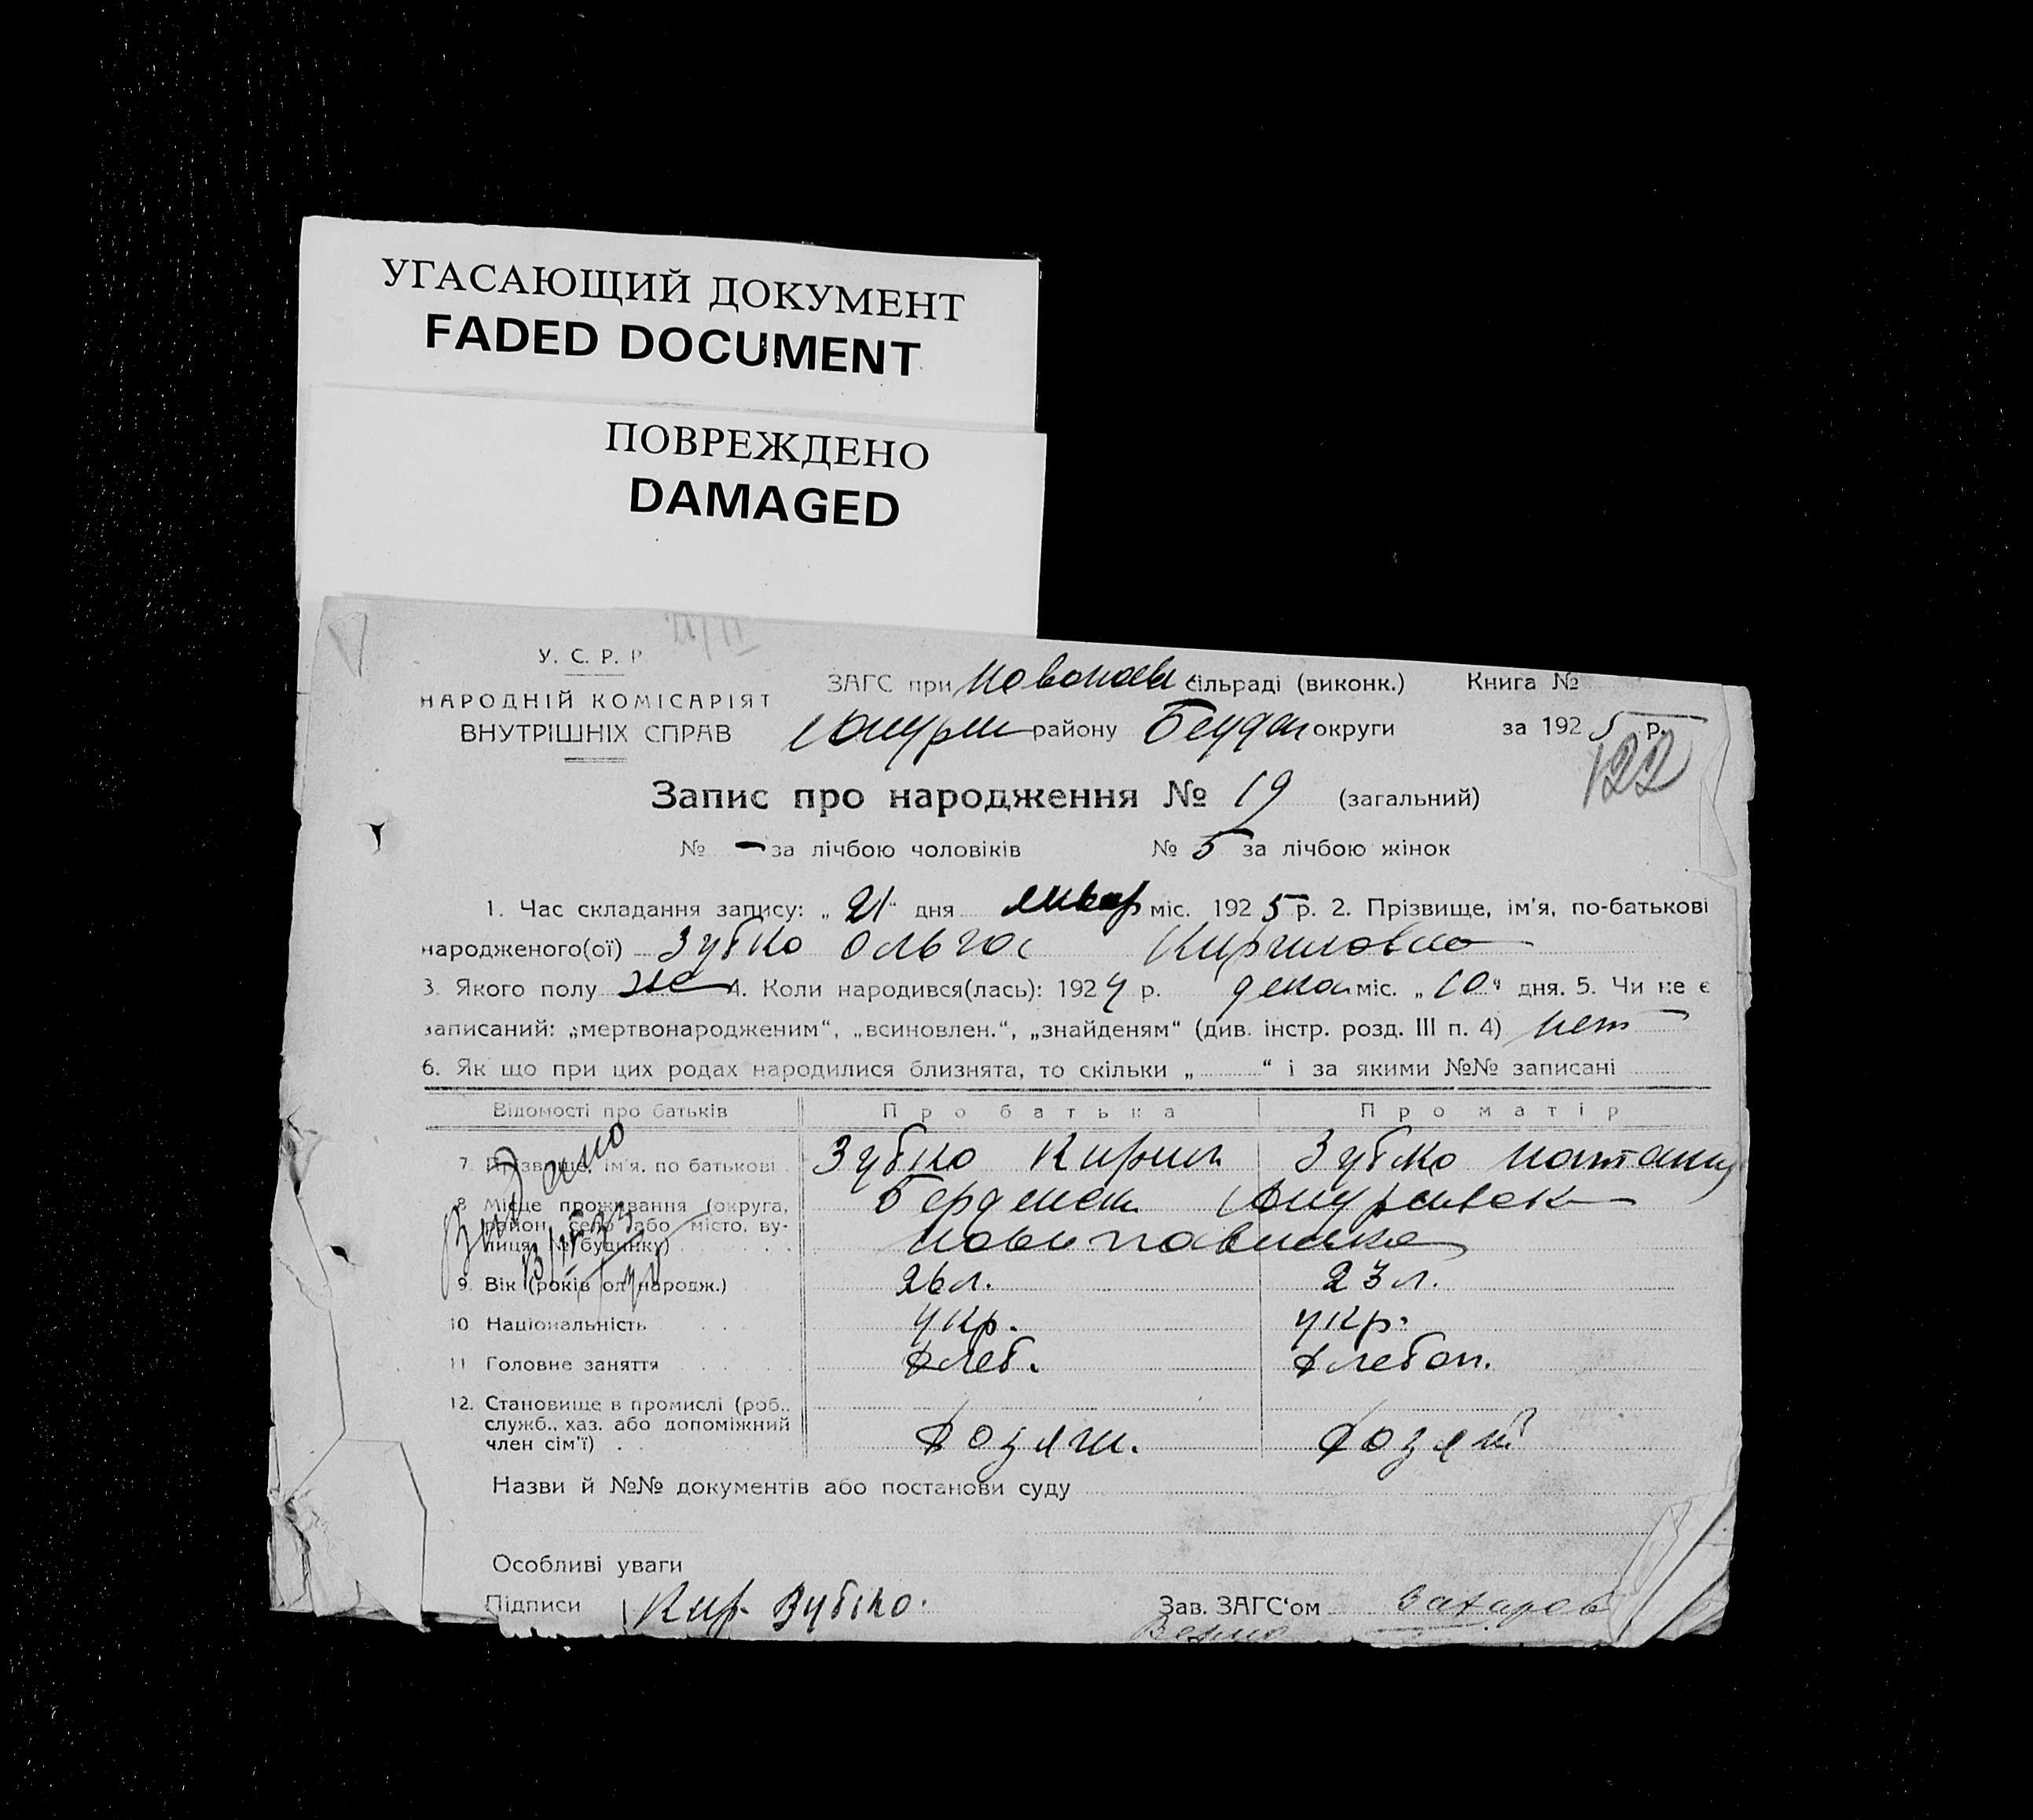 УГАСАЮЩИЙ ДОКУМЕНТ
FADED DOCUMENT
ПОВРЕЖДЕНО
DAMAGED
У. С. Р. Р
НАРОДНІЙ КОМІСАРІЯТ
ВНУТРІШНІХ СПРАВ
ЗАГС при сільраді (виконк.) Книга №
району округи за 1925 р.
122
Запис про народження № 19 (загальний)
№ – за лічбою чоловіків № 5 за лічбою жінок
1. Час складання запису: „21“ дня январ міс. 1925 р. 2. Прізвище, ім'я, по-батькові
народженого(ої) Зубко Ольга Кириловна
3. Якого полу же 4. Коли народився(лась): 1924 р. дека міс. „10“ дня. 5. Чи не є
записаний: „мертвонародженим“, „всиновлен.“, „знайденям“ (див. інстр. розд. III п. 4) нет
6. Як що при цих родах народилися близнята, то скільки „ “ і за якими №№ записані
Відомості про батьків Про батька Про матір
7 Прізвище, ім'я, по батькові Зубко Кирил Зубко
8 Місце проживання (округа,
район, село або місто, ву-
лиця, № будинку)
9. Вік (років од народж.) 26 л. 23 л.
10 Національність укр. укр.
11 Головне заняття хлеб. хлебоп.
12. Становище в промислі (роб.,
служб., хаз. або допоміжний
член сім'ї) хозяин.
Назви й №№ документів або постанови суду
Особливі уваги
Підписи Кир. Зубко. Зав. ЗАГС‘ом Захаров